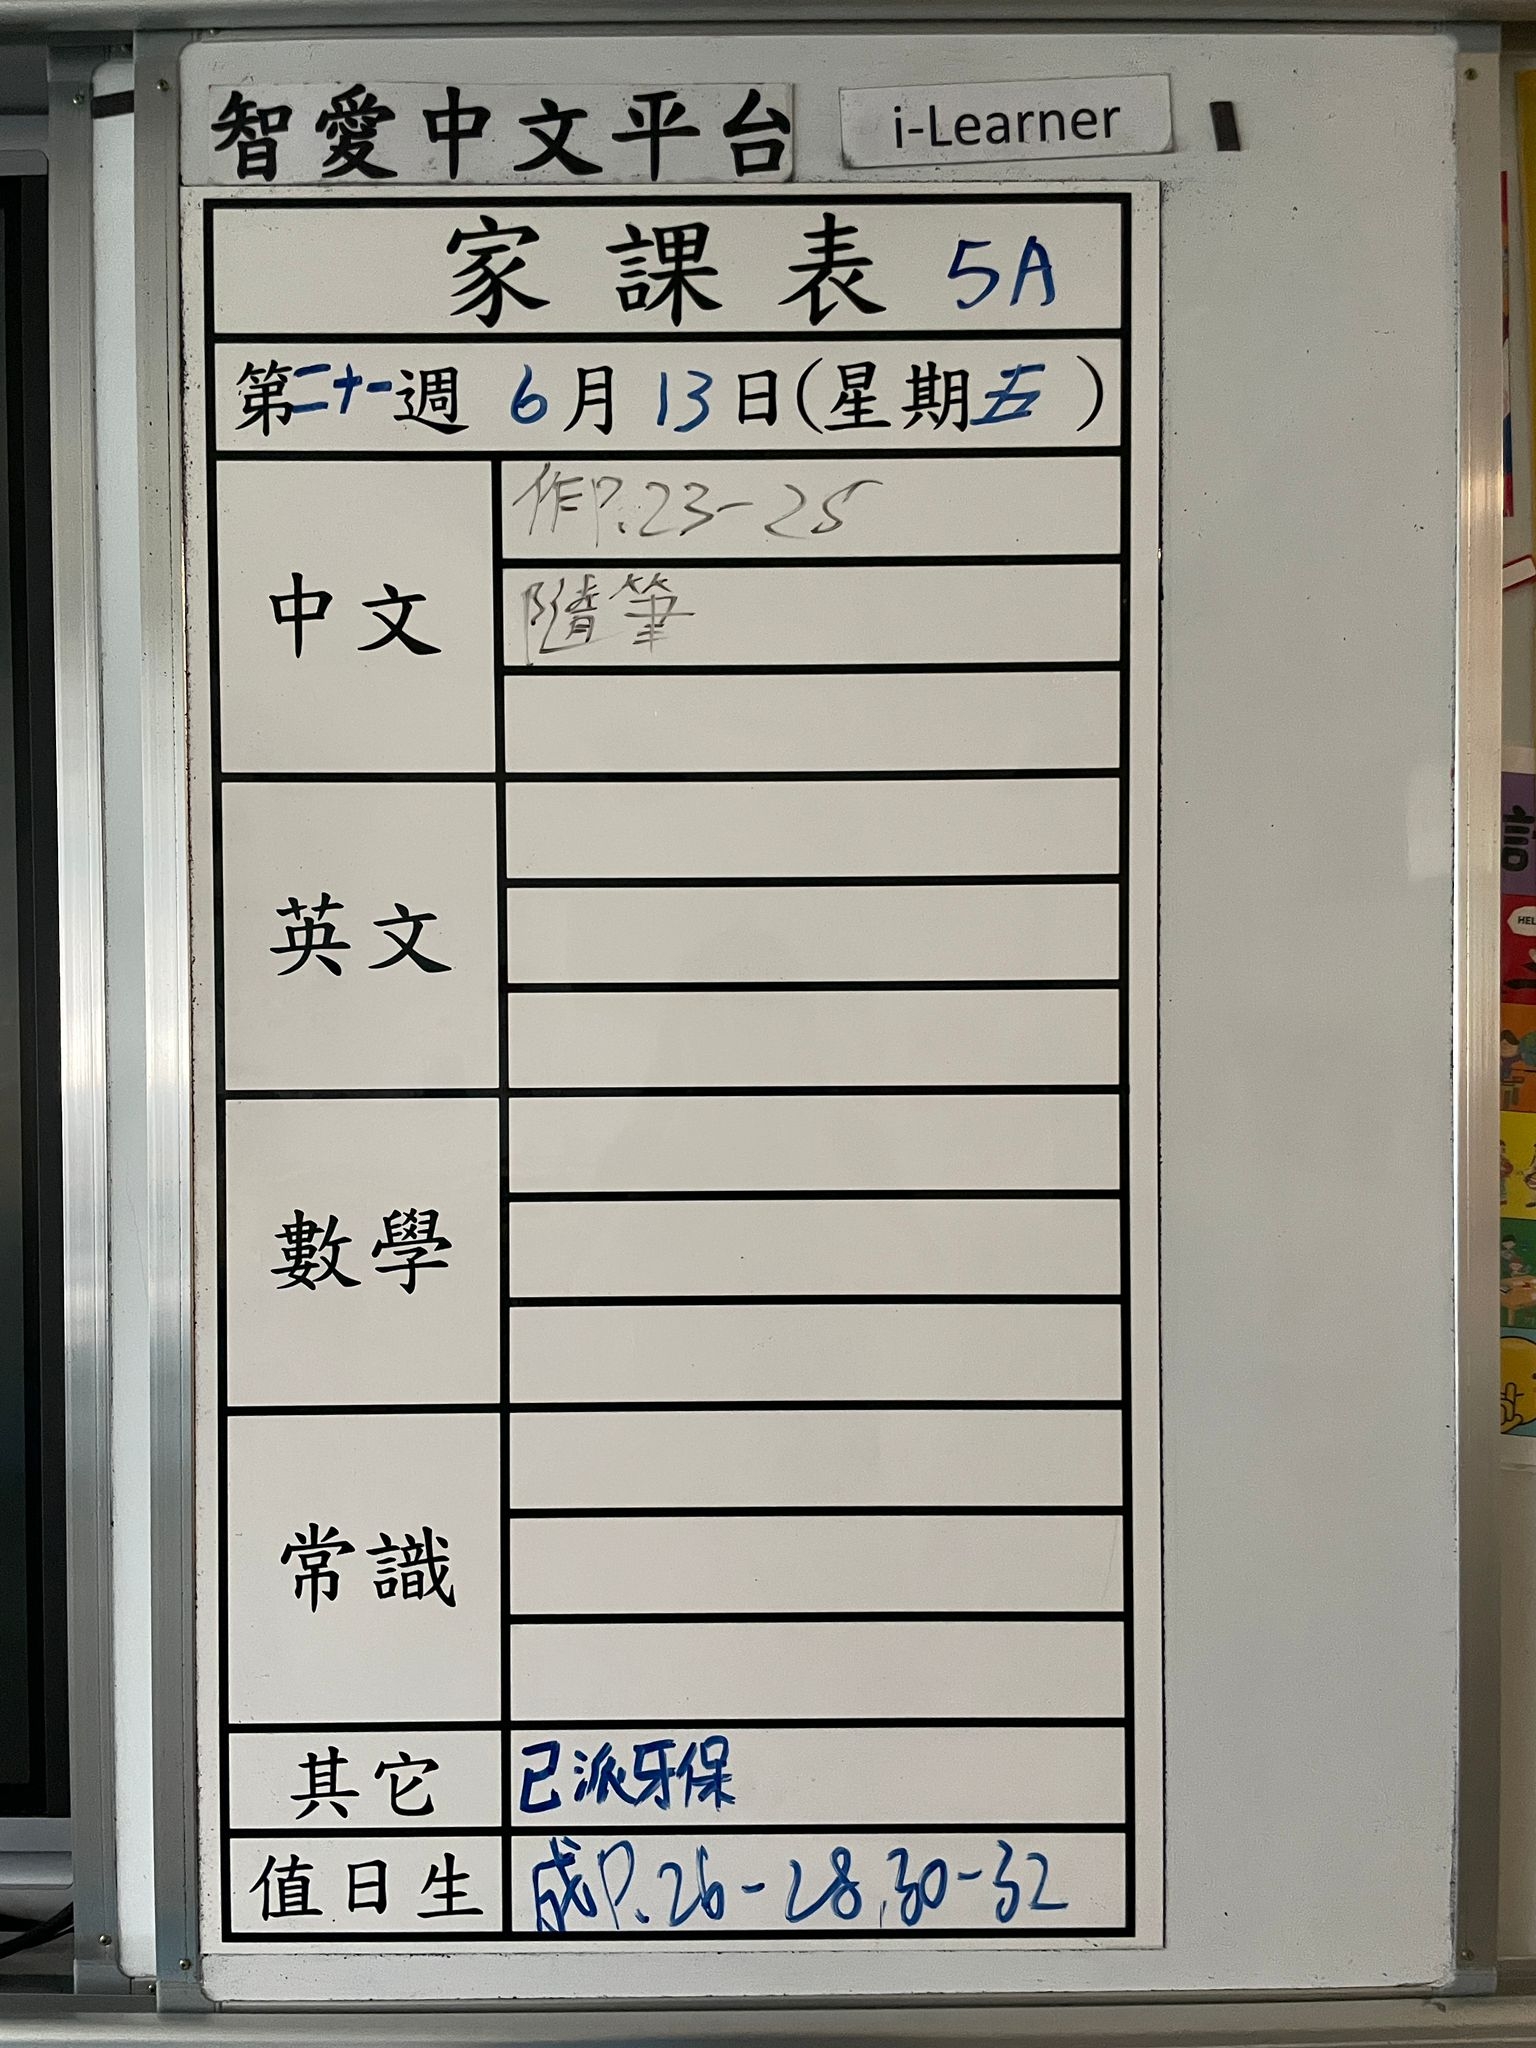 智愛中文平台 i-Learner
家課表 5A
第二十一週 6月13日(星期五)
中文
作P.23-25
隨筆
英文
數學
常識
其它 已派牙保
值日生 成P.26-28,30-32
HEL